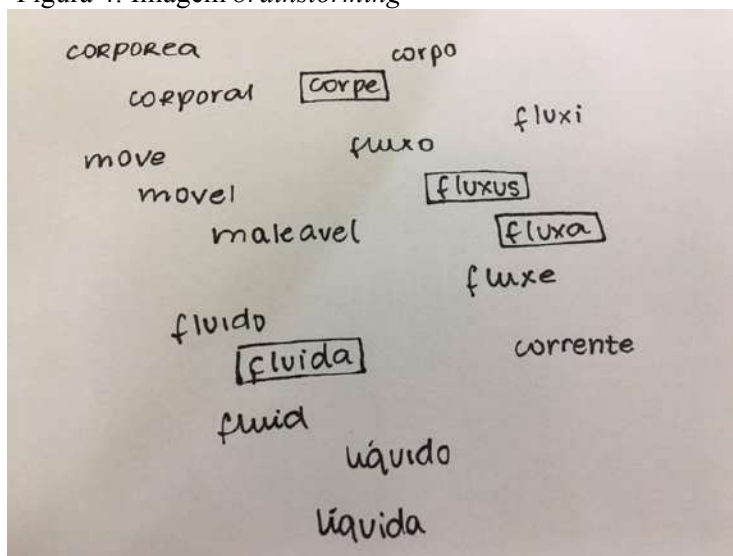 Figura 4: Imagem brainstorming
corporea
corpo
corporal
corpe
fluxi
move
fluxo
movel
fluxus
maleavel
fluxa
fluxe
fluido
corrente
fluida
fluid
líquido
líquida